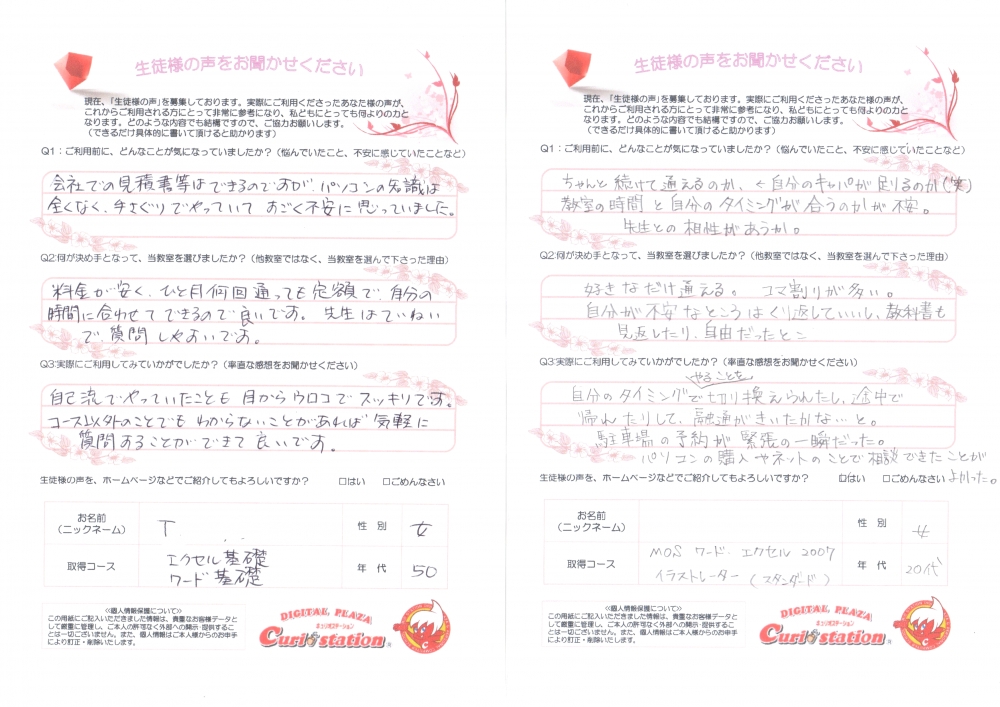 生徒様の声をお聞かせください
現在、「生徒様の声」を募集しております。実際にご利用くださったあなた様の声が、
これからご利用される方にとって非常に参考になり、私どもにとっても何よりの力と
なります。どのような内容でも結構ですので、ご協力お願いします。
（できるだけ具体的に書いて頂けると助かります）
Q1：ご利用前に、どんなことが気になっていましたか？（悩んでいたこと、不安に感じていたことなど）
会社での見積書等はできるのですが、パソコンの知識は
全くなく、手さぐりでやっていて すごく不安に思っていました。
Q2:何が決め手となって、当教室を選びましたか？（他教室ではなく、当教室を選んで下さった理由）
料金が安く、ひと月何回通っても定額で、自分の
時間に合わせてできるので良いです。 先生はていねい
で、質問しやすいです。
Q3:実際にご利用してみていかがでしたか？（率直な感想をお聞かせください）
自己流でやっていたことも 目からウロコでスッキリです。
コース以外のことでも わからないことがあれば 気軽に
質問することができて良いです。
生徒様の声を、ホームページなどでご紹介してもよろしいですか？ □はい □ごめんなさい
お名前
（ニックネーム）
T
性 別
女
取得コース
エクセル基礎
ワード基礎
年 代
50
≪個人情報保護について≫
この用紙にご記入いただきました情報は、貴重なお客様データと
して厳重に管理し、ご本人の許可なく外部への開示・提供するこ
とは一切ございません。また、個人情報はご本人様からのお申手
により訂正・削除いたします。
DIGITAL PLAZA
キュリオステーション
Curio station
生徒様の声をお聞かせください
現在、「生徒様の声」を募集しております。実際にご利用くださったあなた様の声が、
これからご利用される方にとって非常に参考になり、私どもにとっても何よりの力と
なります。どのような内容でも結構ですので、ご協力お願いします。
（できるだけ具体的に書いて頂けると助かります）
Q1：ご利用前に、どんなことが気になっていましたか？（悩んでいたこと、不安に感じていたことなど）
ちゃんと続けて通えるのか、←自分のキャパが足りるのか（笑）
教室の時間と自分のタイミングが合うのかが不安。
先生との相性があうか。
Q2:何が決め手となって、当教室を選びましたか？（他教室ではなく、当教室を選んで下さった理由）
好きなだけ通える。 コマ割りが多い。
自分が不安なところはくり返していいし、教科書も
見返したり、自由だったとこ
Q3:実際にご利用してみていかがでしたか？（率直な感想をお聞かせください）
やることを
自分のタイミングで切り換えられたし、途中で
帰れたりして、融通がきいたかな…と。
駐車場の予約が緊張の一瞬だった。
パソコンの購入やネットのことで相談できたことが
よかった。
生徒様の声を、ホームページなどでご紹介してもよろしいですか？ □はい □ごめんなさい
お名前
（ニックネーム）
性 別
女
取得コース
MOS ワード、エクセル 2007
イラストレーター（スタンダード）
年 代
20代
≪個人情報保護について≫
この用紙にご記入いただきました情報は、貴重なお客様データと
して厳重に管理し、ご本人の許可なく外部への開示・提供するこ
とは一切ございません。また、個人情報はご本人様からのお申手
により訂正・削除いたします。
DIGITAL PLAZA
キュリオステーション
Curio station